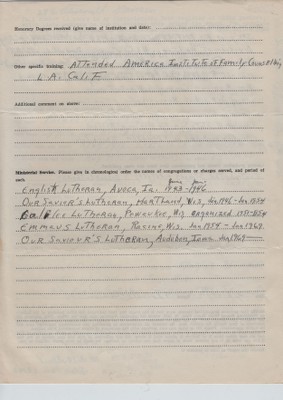 Honorary Degrees received (give name of institution and date):
Other specific training: Attended America Institute of Family Counseling
L.A. Calif
Additional comment on above:
Ministerial Service. Please give in chronological order the names of congregations or charges served, and period of
each.
English Lutheran, Avoca, Ia. 1943-1946
Our Savior's Lutheran, Hartland, Wis, Jan 1946-Jan 1954
Lutheran, Wis organized 1951-1954
Emmaus Lutheran, Racine, Wis. Jan 1954 - Jan 1969
Our Saviour's Lutheran, Audubon, Iowa Jan 1969